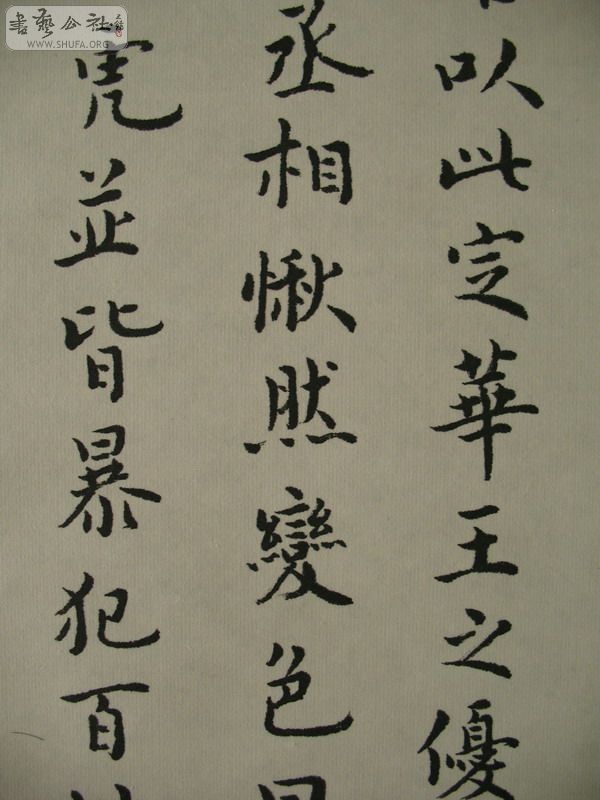 以此定華王之優
丞相愀然變色
虎並皆暴犯百
書藝公社
WWW.SHUFA.ORG